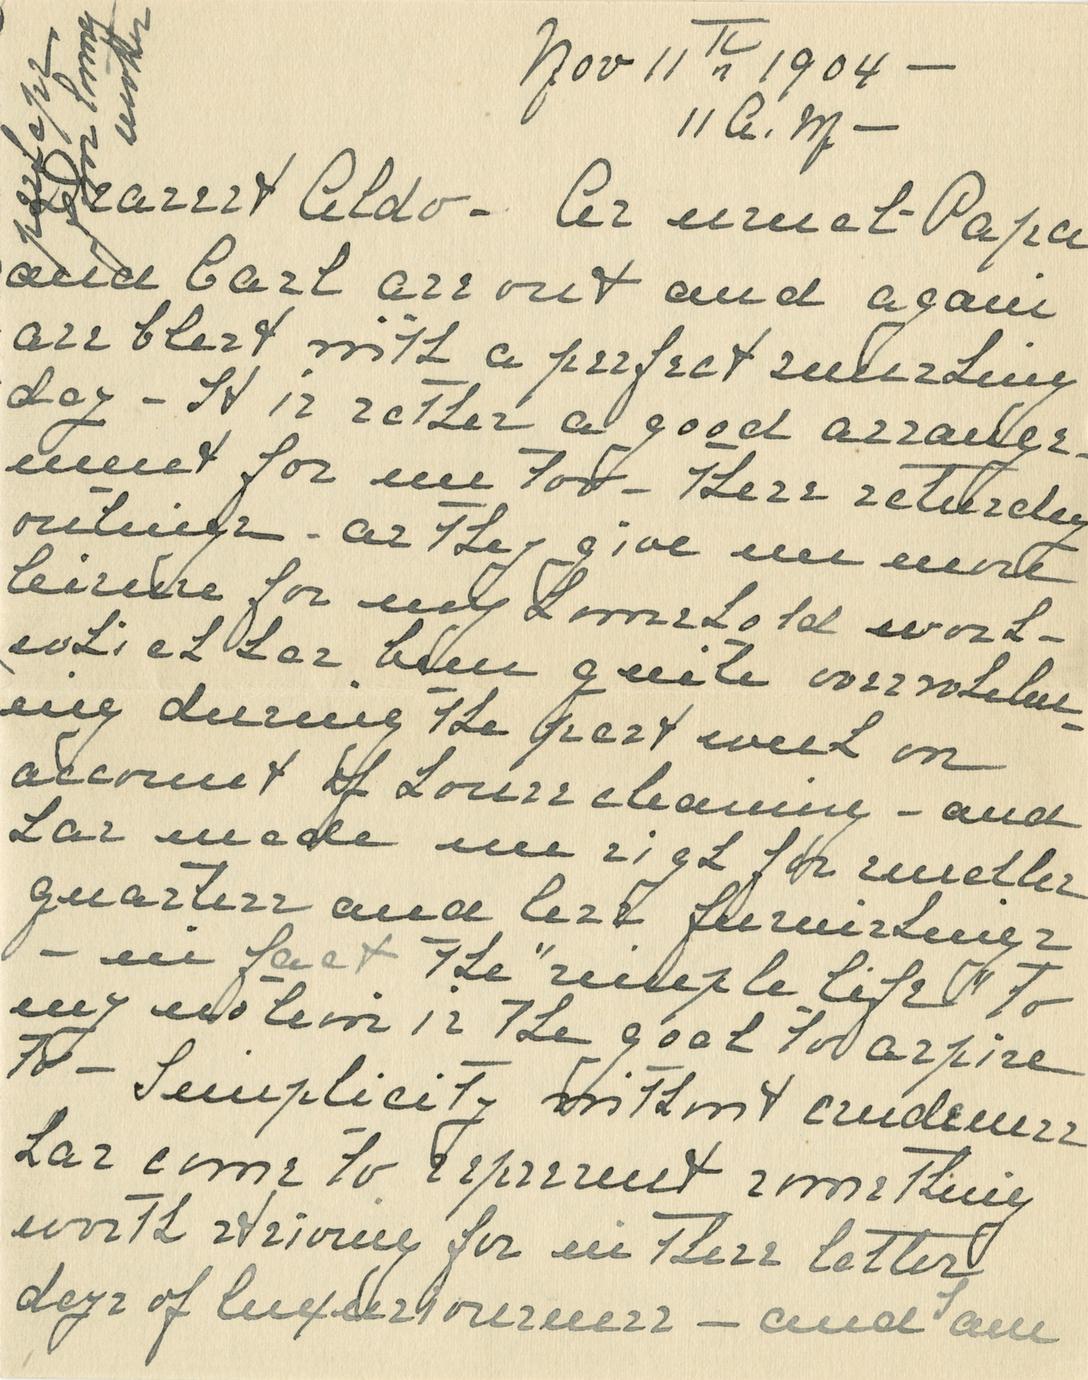 Nov 11th 1904 —
11 A.M —
Dearest Aldo - As usual - Papa
and Carl are out and again
are blest with a perfect sunshiny
day - It is rather a good arrange-
ment for me too - these saturday
outings - as they give me more
leisure for my household work -
which has been quite overwhelm-
ing during the past week on
account of house cleaning - and
has made me sigh for smaller
quarters and less furnishings
- in fact the "simple life" to
my notion is the goal to aspire
to - Simplicity without crudeness
has come to represent something
worth striving for in these latter
days of luxuriousness — and I am
perhaps
mother